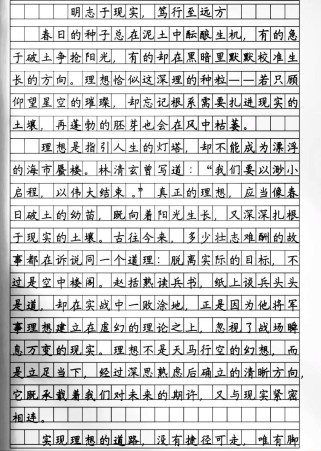 明志于现实，笃行至远方
春日的种子总在泥土中酝酿生机，有的急
于破土争抢阳光，有的却在黑暗里默默校准生
长的方向。理想恰似这深埋的种粒——若只顾
仰望星空的璀璨，却忘记根系需要扎进现实的
土壤，再蓬勃的胚芽也会在风中枯萎。
理想是指引人生的灯塔，却不能成为漂浮
的海市蜃楼。林清玄曾写道：“我们要以渺小
启程，以伟大结束。”真正的理想，应当像春
日破土的幼苗，既向着阳光生长，又深深扎根
于现实的土壤。古往今来，多少壮志难酬的故
事都在诉说同一个道理：脱离实际的目标，不
过是空中楼阁。赵括熟读兵书，纸上谈兵头头
是道，却在实战中一败涂地，正是因为他将军
事理想建立在虚幻的理论之上，忽视了战场瞬
息万变的现实。理想不是天马行空的幻想，而
是立足当下，经过深思熟虑后确立的清晰方向，
它既承载着我们对未来的期许，又与现实紧密
相连。
实现理想的道路，没有捷径可走，唯有脚